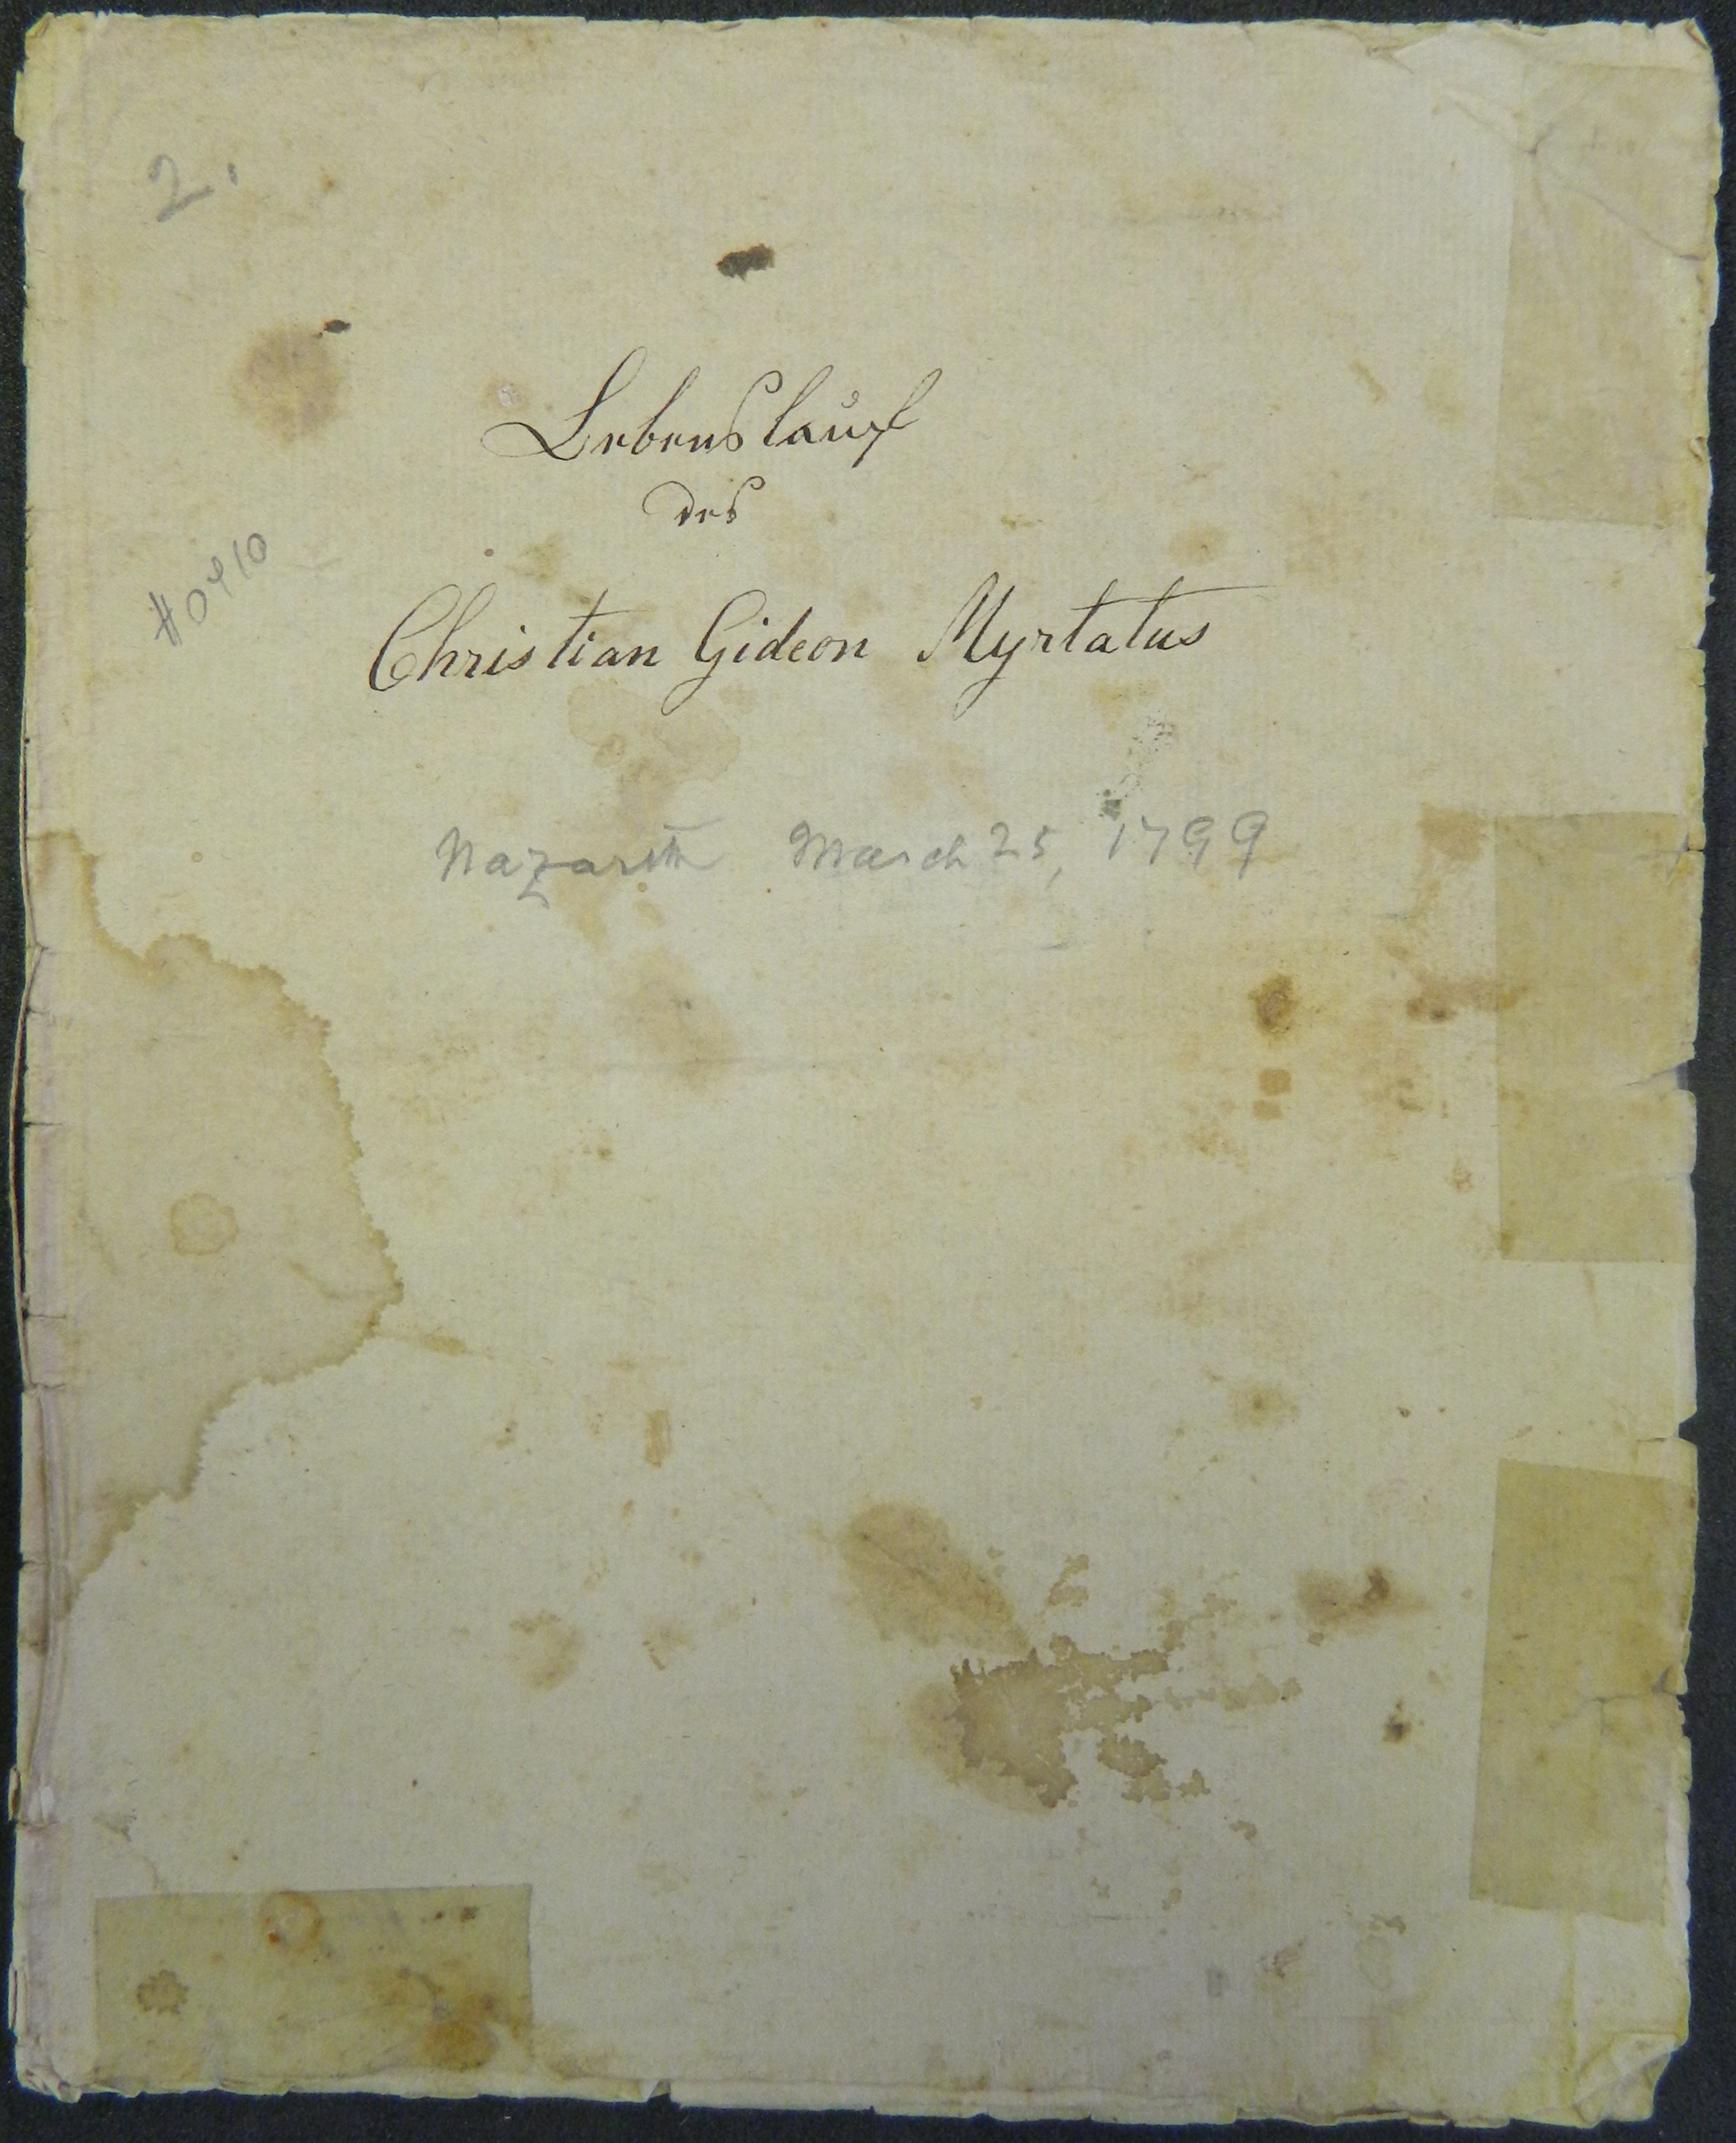 2.
Lebenslauf
des
#0410
Christian Gideon Myrtatus
Nazareth March 25, 1799